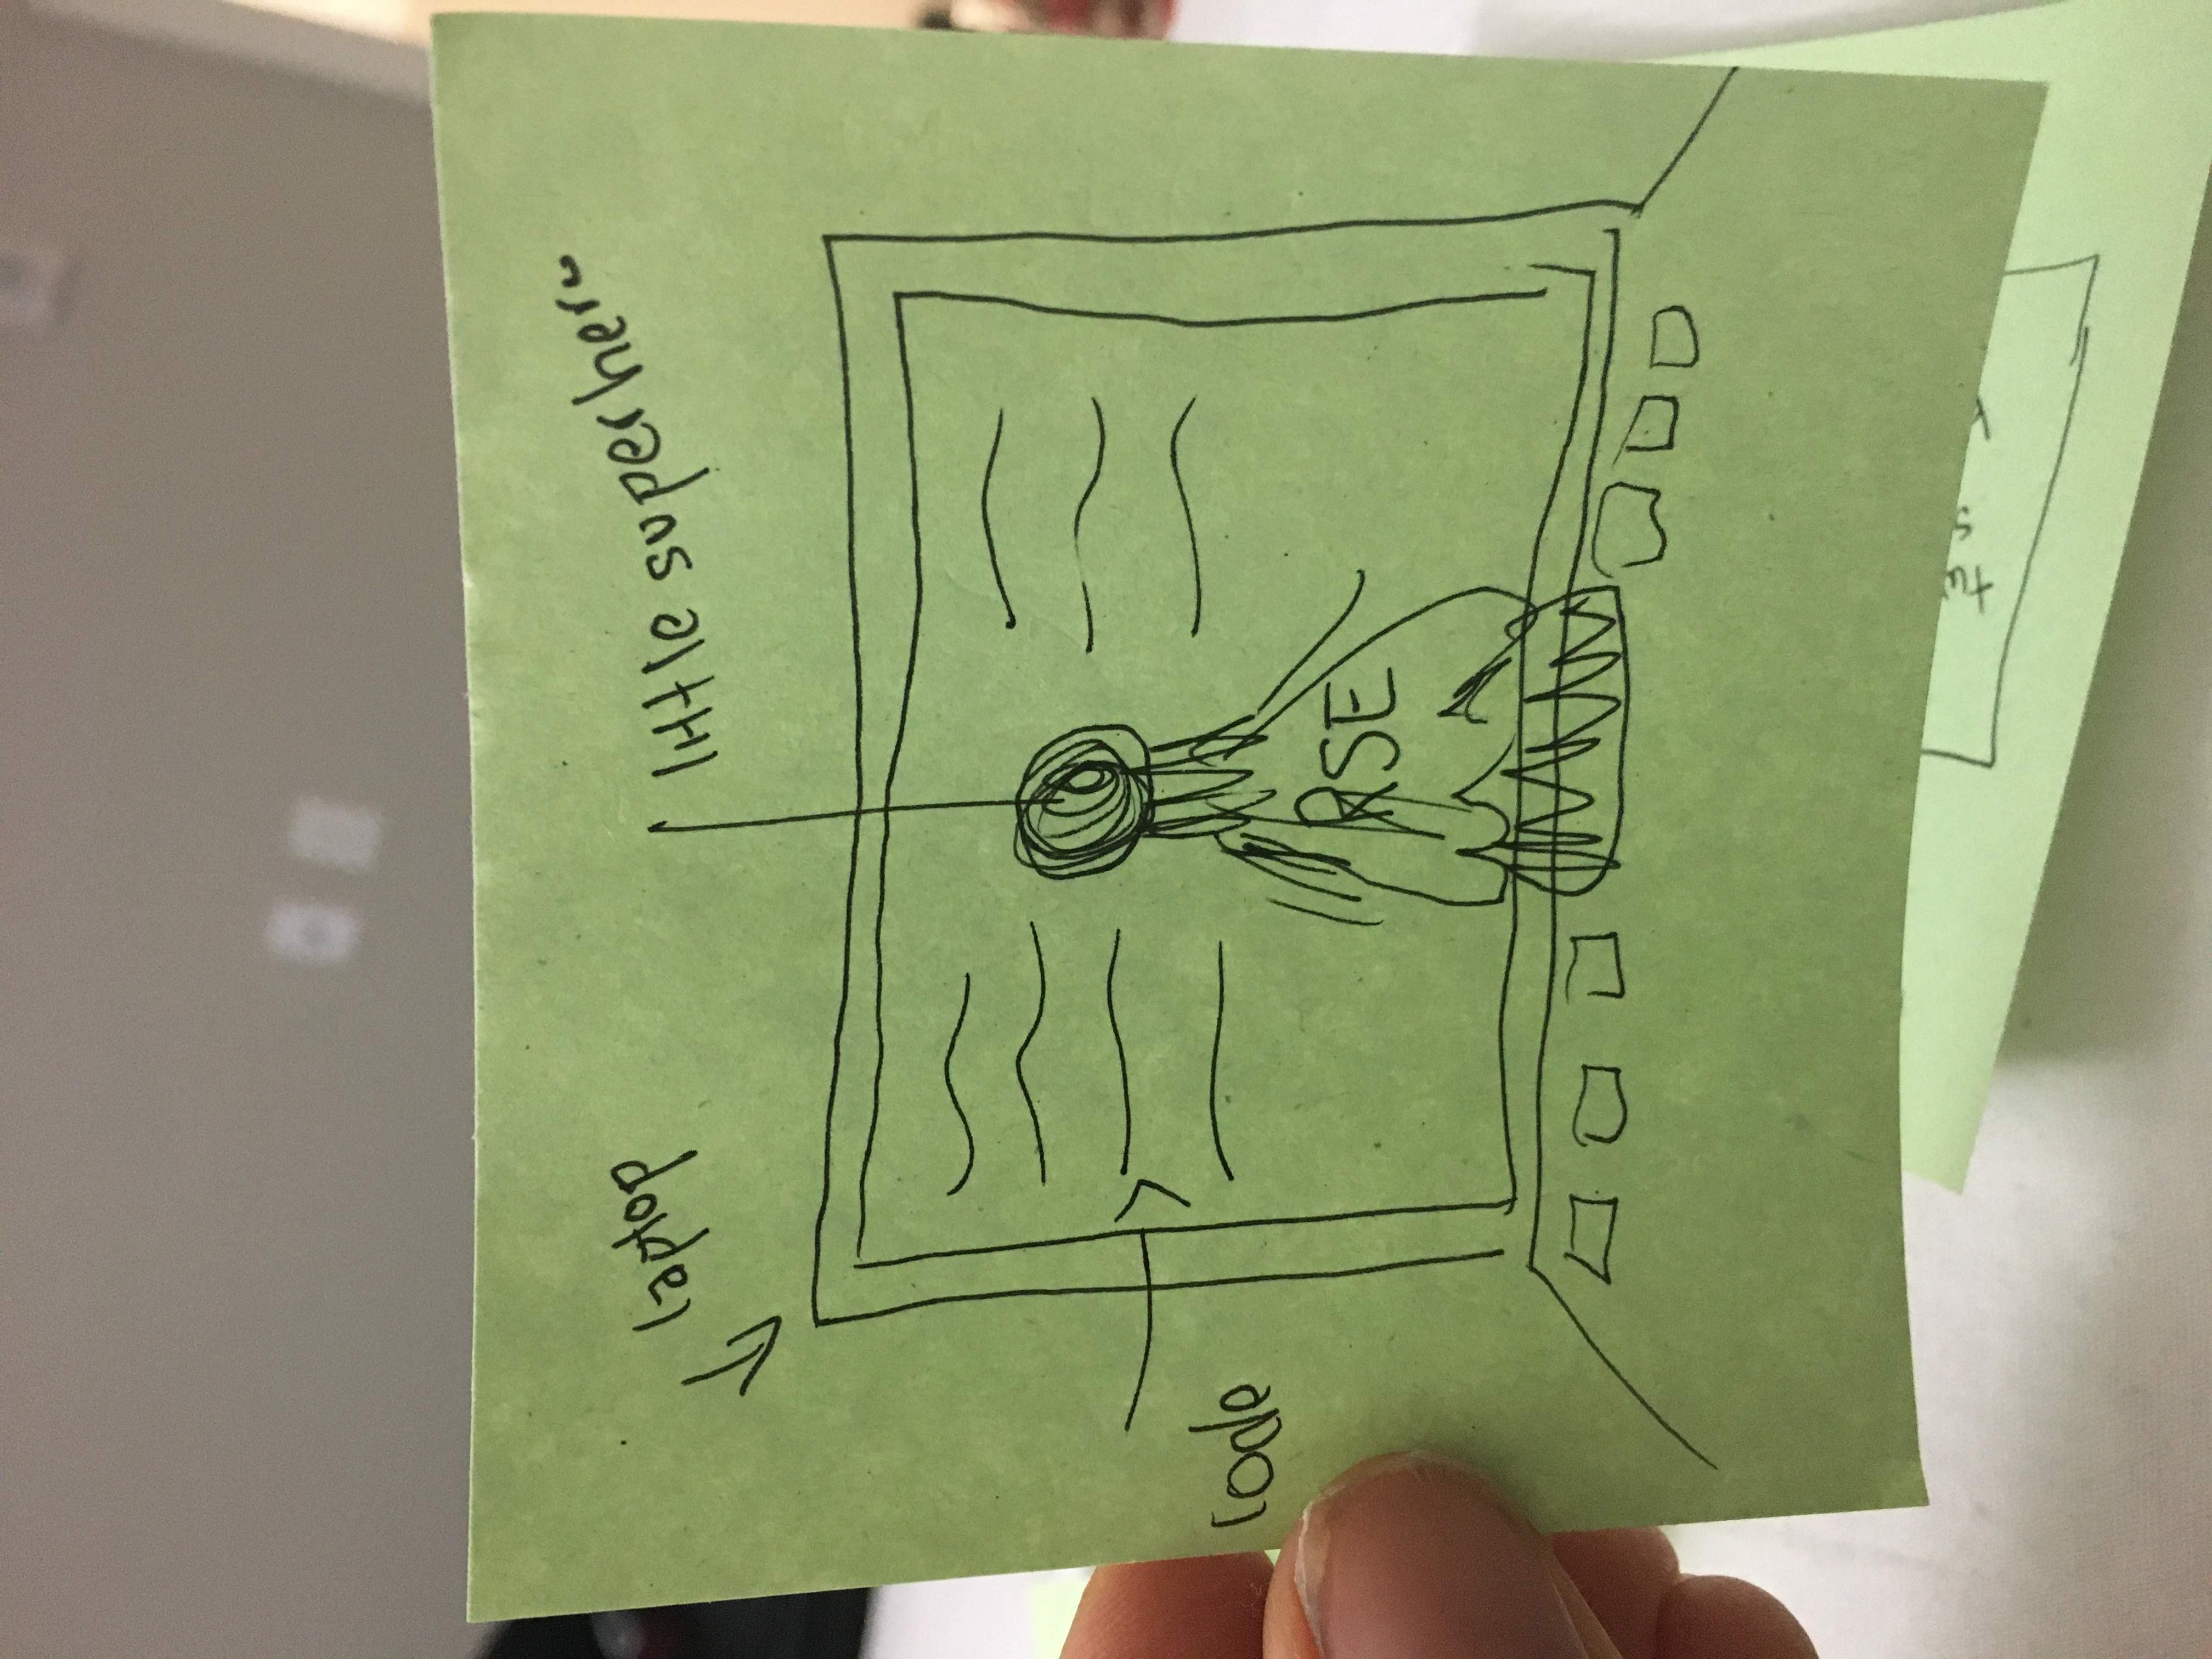 laptop
little superhero
code
RSE